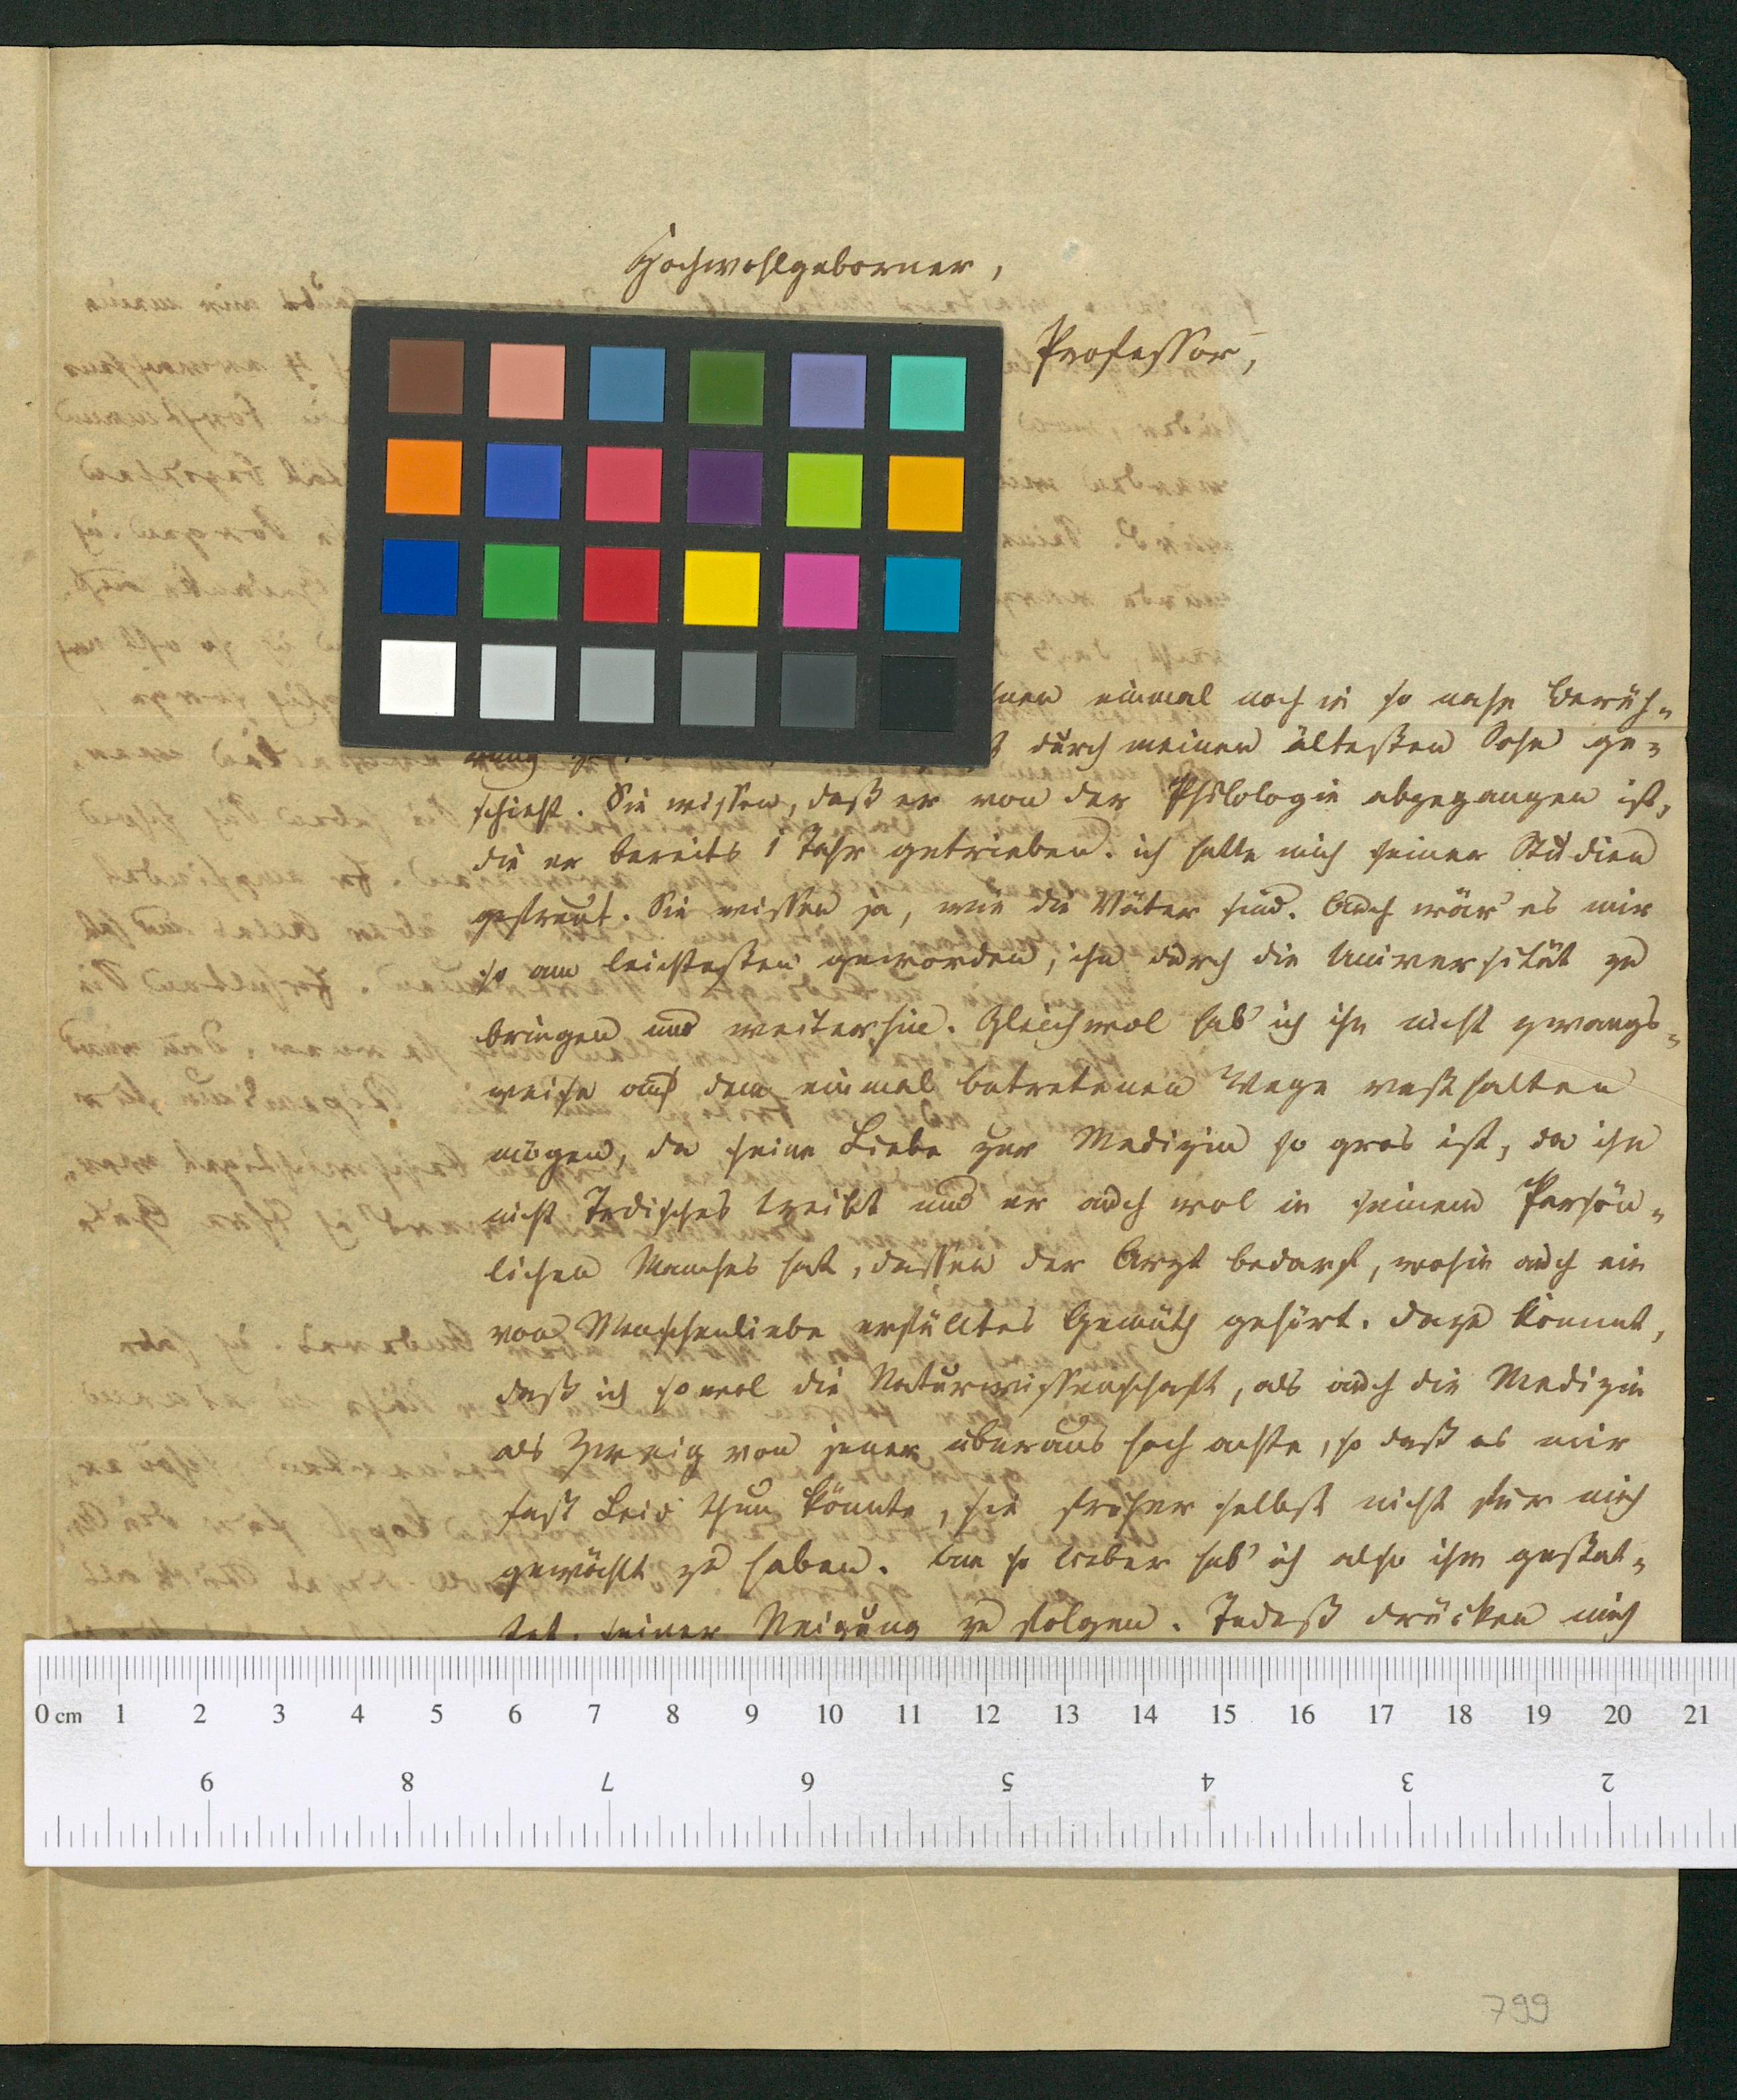 Hochwohlgeborner,
Professor,
einmal noch in so nahe Berüh-
rung durch meinen ältesten Sohn ge-
schieht. Sie wissen, daß er von der Philologie abgegangen ist,
die er bereits 1 Jahr getrieben. ich hatte mich seiner Studien
gefreut. Sie wissen ja, wie die Väter sind. Auch wär' es mir
so am leichtesten geworden, ihn durch die Universität zu
bringen und weiterhin. Gleichwol hab' ich ihn nicht zwangs-
weise auf dem einmal betretenen Wege vesthalten
mögen, da seine Liebe zur Medizin so gros ist, da ihn
nicht Irdisches treibt und er auch wol in seinem Persön-
lichen Manches hat, dessen der Arzt bedarf, wohin auch ein
von Menschenliebe erfülltes Gemüth gehört. dazu kommt,
daß ich sowol die Naturwissenschaft, als auch die Medizin
als Zweig von jener überaus hoch achte, so daß es mir
fast Leid thun könnte, sie früher selbst nicht für mich
gewählt zu haben. Um so lieber hab' ich also ihm gestat-
tet, seiner Neigung zu folgen. Indeß drücken mich
0 cm 1 2 3 4 5 6 7 8 9 10 11 12 13 14 15 16 17 18 19 20 21
9 8 7 6 5 4 3 2
799